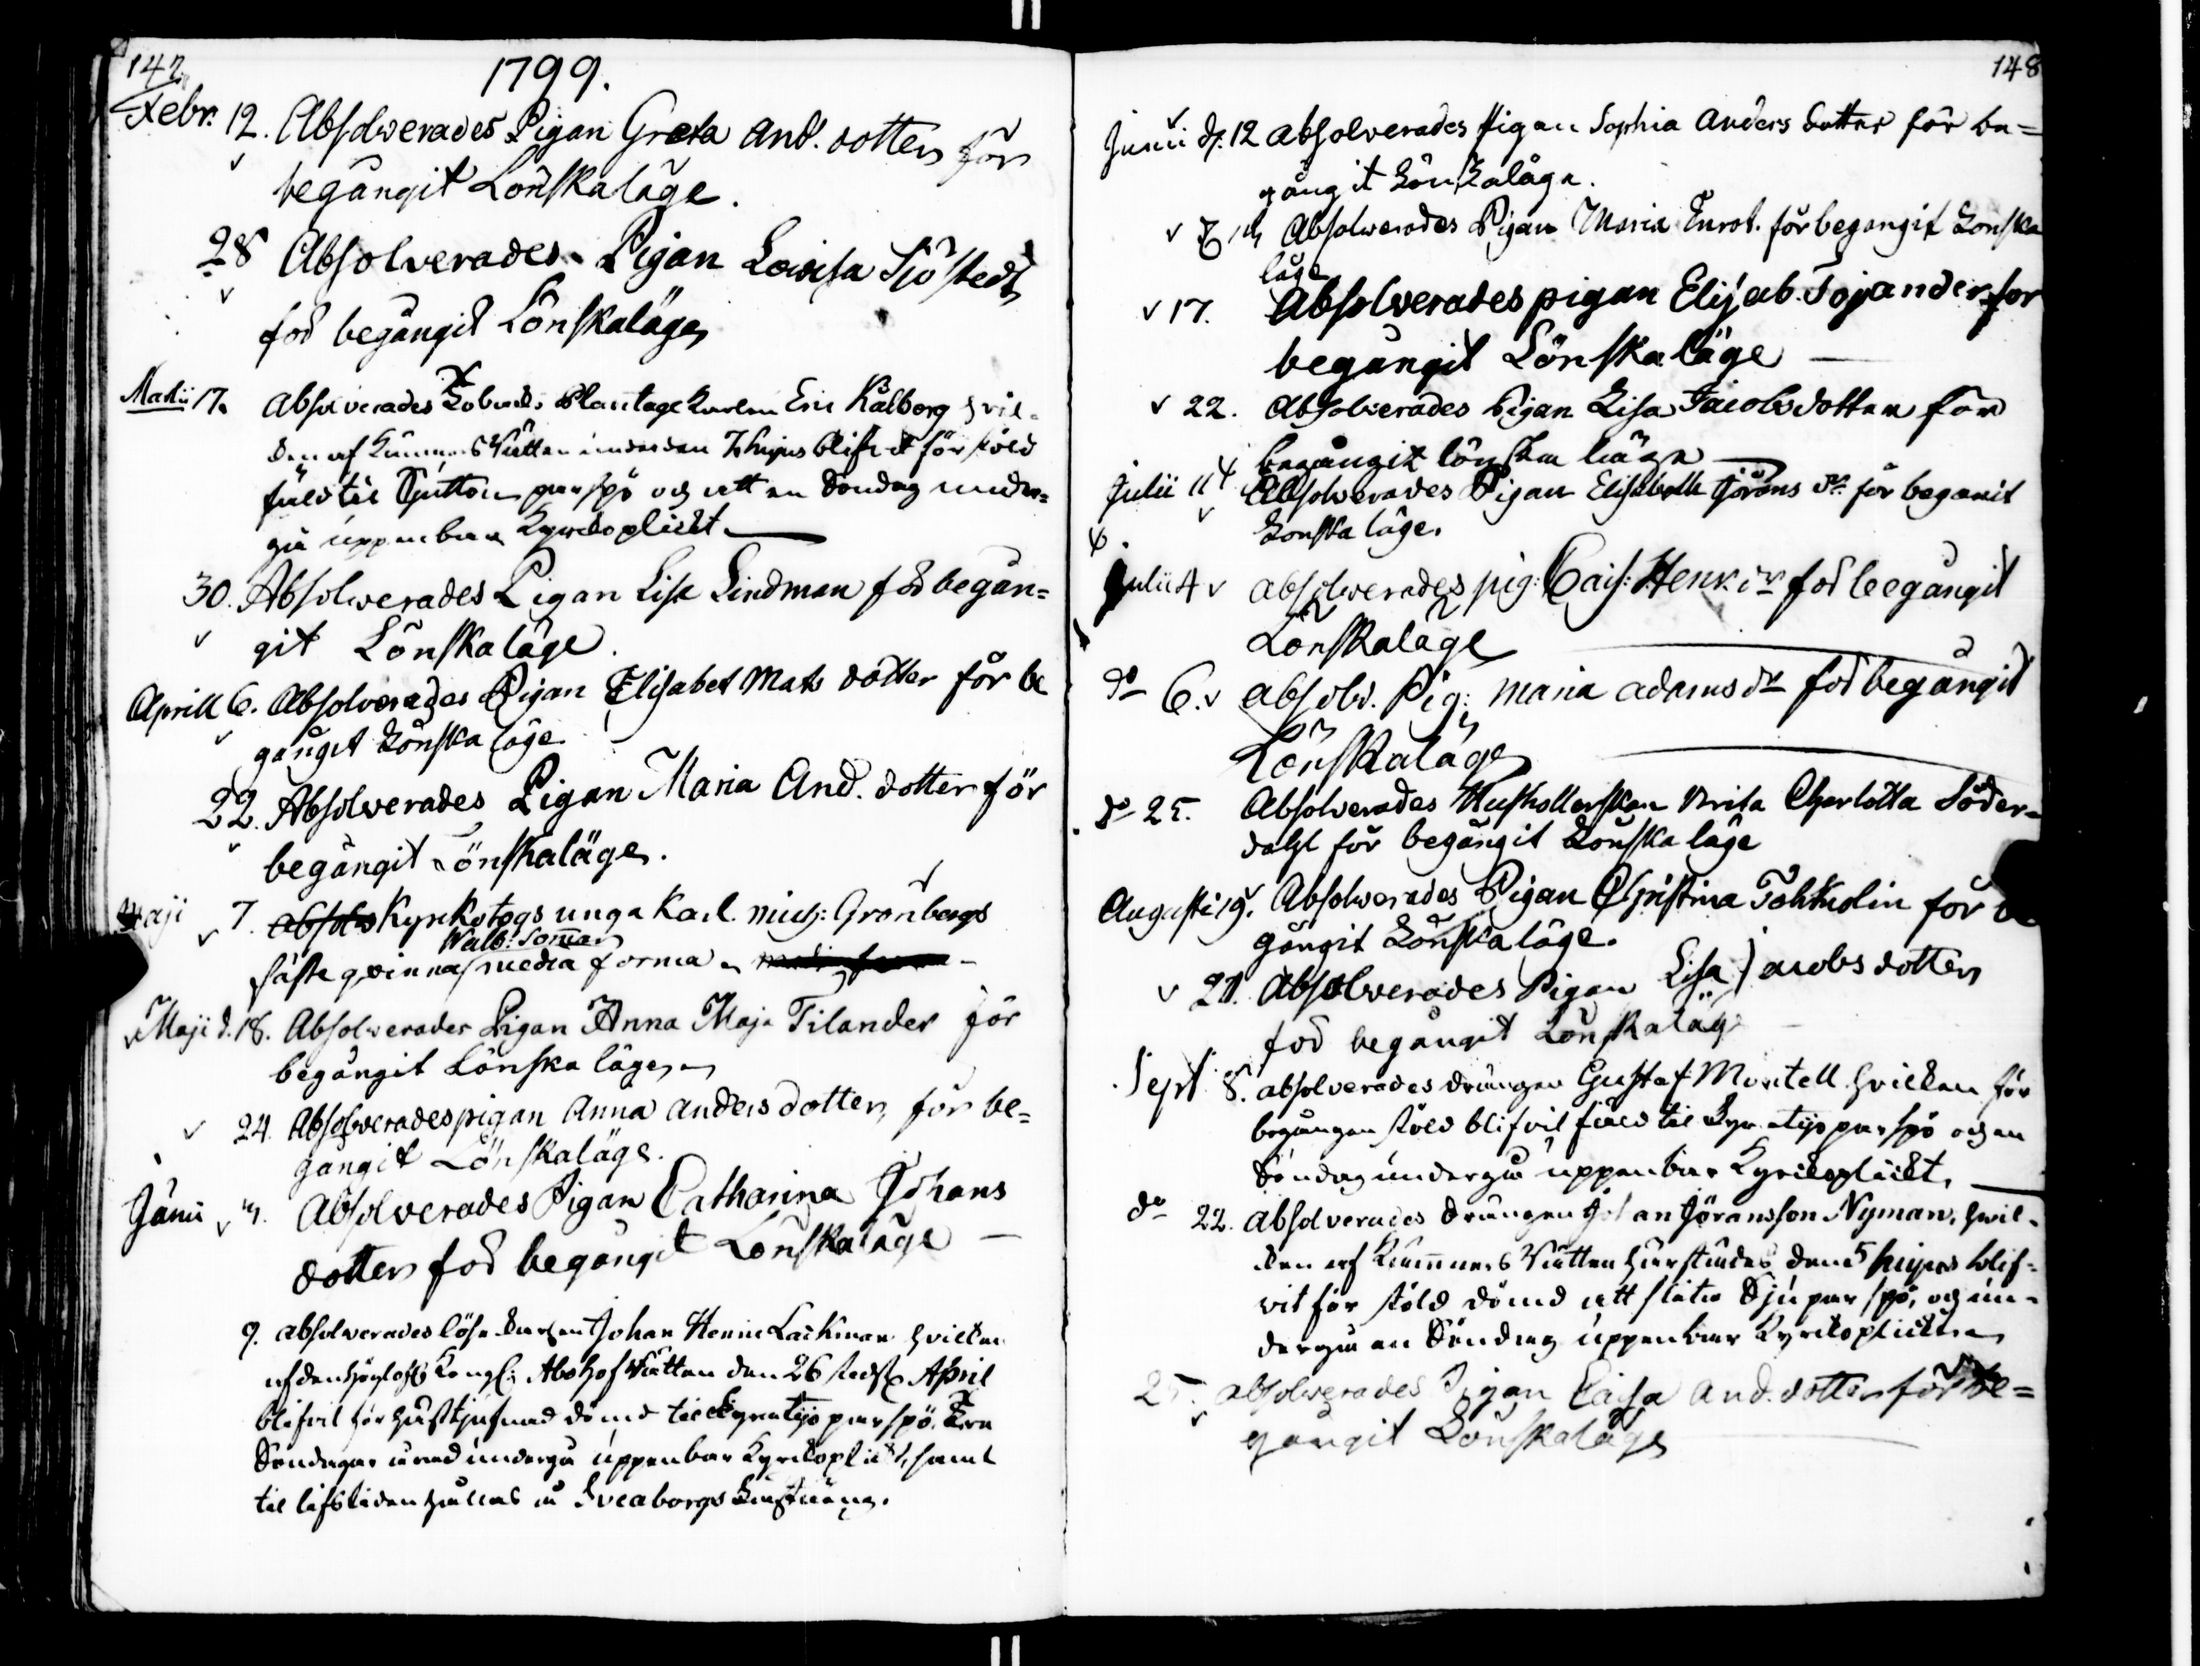 147
1799.
Febr. 12. Absolverades Pigan Greta And. dotter för
begångit Lönskaläge.
28 Absolverades Pigan Lovisa Sjöstedt
för begångit Lönskaläge
Martii 17. Absolverades Tobaks Plantage Karlen Eric Kålborg hvil-
den af Kämners Rätten under den hujus blifvit för stöld
fäld til Sjutton par spö och att en Söndag under-
gå uppenbar Kyrkoplickt
30. Absolverades Pigan Lisa Lindman för begån-
git Lönskaläge.
Aprill 6. Absolverades Pigan Elisabet Mats dotter för be
gångit Lönskaläge
22. Absolverades Pigan Maria And. dotter för
begångit Lönskaläge.
Maji 7. absolv Kyrkotogs unga Karl. Mich: Grönbergs
Walb: Somar
fästeqvinna media forma
Maji d. 18. Absolverades Pigan Anna Maja Tilander för
begångit Lönska läge
24. Absolverades pigan Anna Anders dotter, för be-
gångit Lönskaläge.
Junii Absolverades Pigan Catharina Johans
dotter för begångit Lönskaläge
9. Absolverades lösa Karlen Johan Henric Lackman hvilken
af den Höglofl. Kongl: Åbo Hof Rätten den 26 sistl. April
blifvit för hustjufnad dömd til Fyratijo par spö, Tre
Söndagar å rad undergå uppenbar Kyrkoplickt, samt
til lifstiden hållas å Sveaborgs Fästning.
148
Junii d. 12 absolverades Pigan Sophia Anders dotter för be-
gångit Lönskaläge.
Absolverades Pigan Maria för begångit Lönska
läge
17. Absolverades pigan Elisab. Tojander för
begångit Lönskaläge
22. Absolverades Pigan Lisa Jacobsdotter för
begångit lönska läge
Julii 11 Absolverades Pigan Elisabeth Görans dr för begånit
Lönska läge.
Julii 4 absolverades pig: Cais: Henr. dr för beegångit
Lönskaläge
do 6. absolv. Pig: Maria Adams dr för begångit
Lönskaläge
do 25. Absolverades Hushollerskan Brita Charlotta Söder-
dahl för begångit Lönska läge
Augusti 19. Absolverades Pigan Christina Tahkolin för be
gångit Lönskaläge.
21. Absolverades Pigan Lisa Jacobs dotter
för begångit Lönskaläge
Sept 8. absolverades drängen Gustaf Montell hvilken för
begången stöld blifvit fäld til Fyratijo par spö och en
Söndag undergå uppenbar Kyrkoplickt.
do 22. Absolverades Drängen Johan Göransson Nyman, hvil-
den af Kämners Rätten härstädes den 5 hujus blif-
vit för stöld dömd att slita Sju par spö, och un-
dergå en Söndag uppenbar Kyrkoplickt
25. absolverades Pigan Caisa And. dotter för be-
gångit Lönskaläge